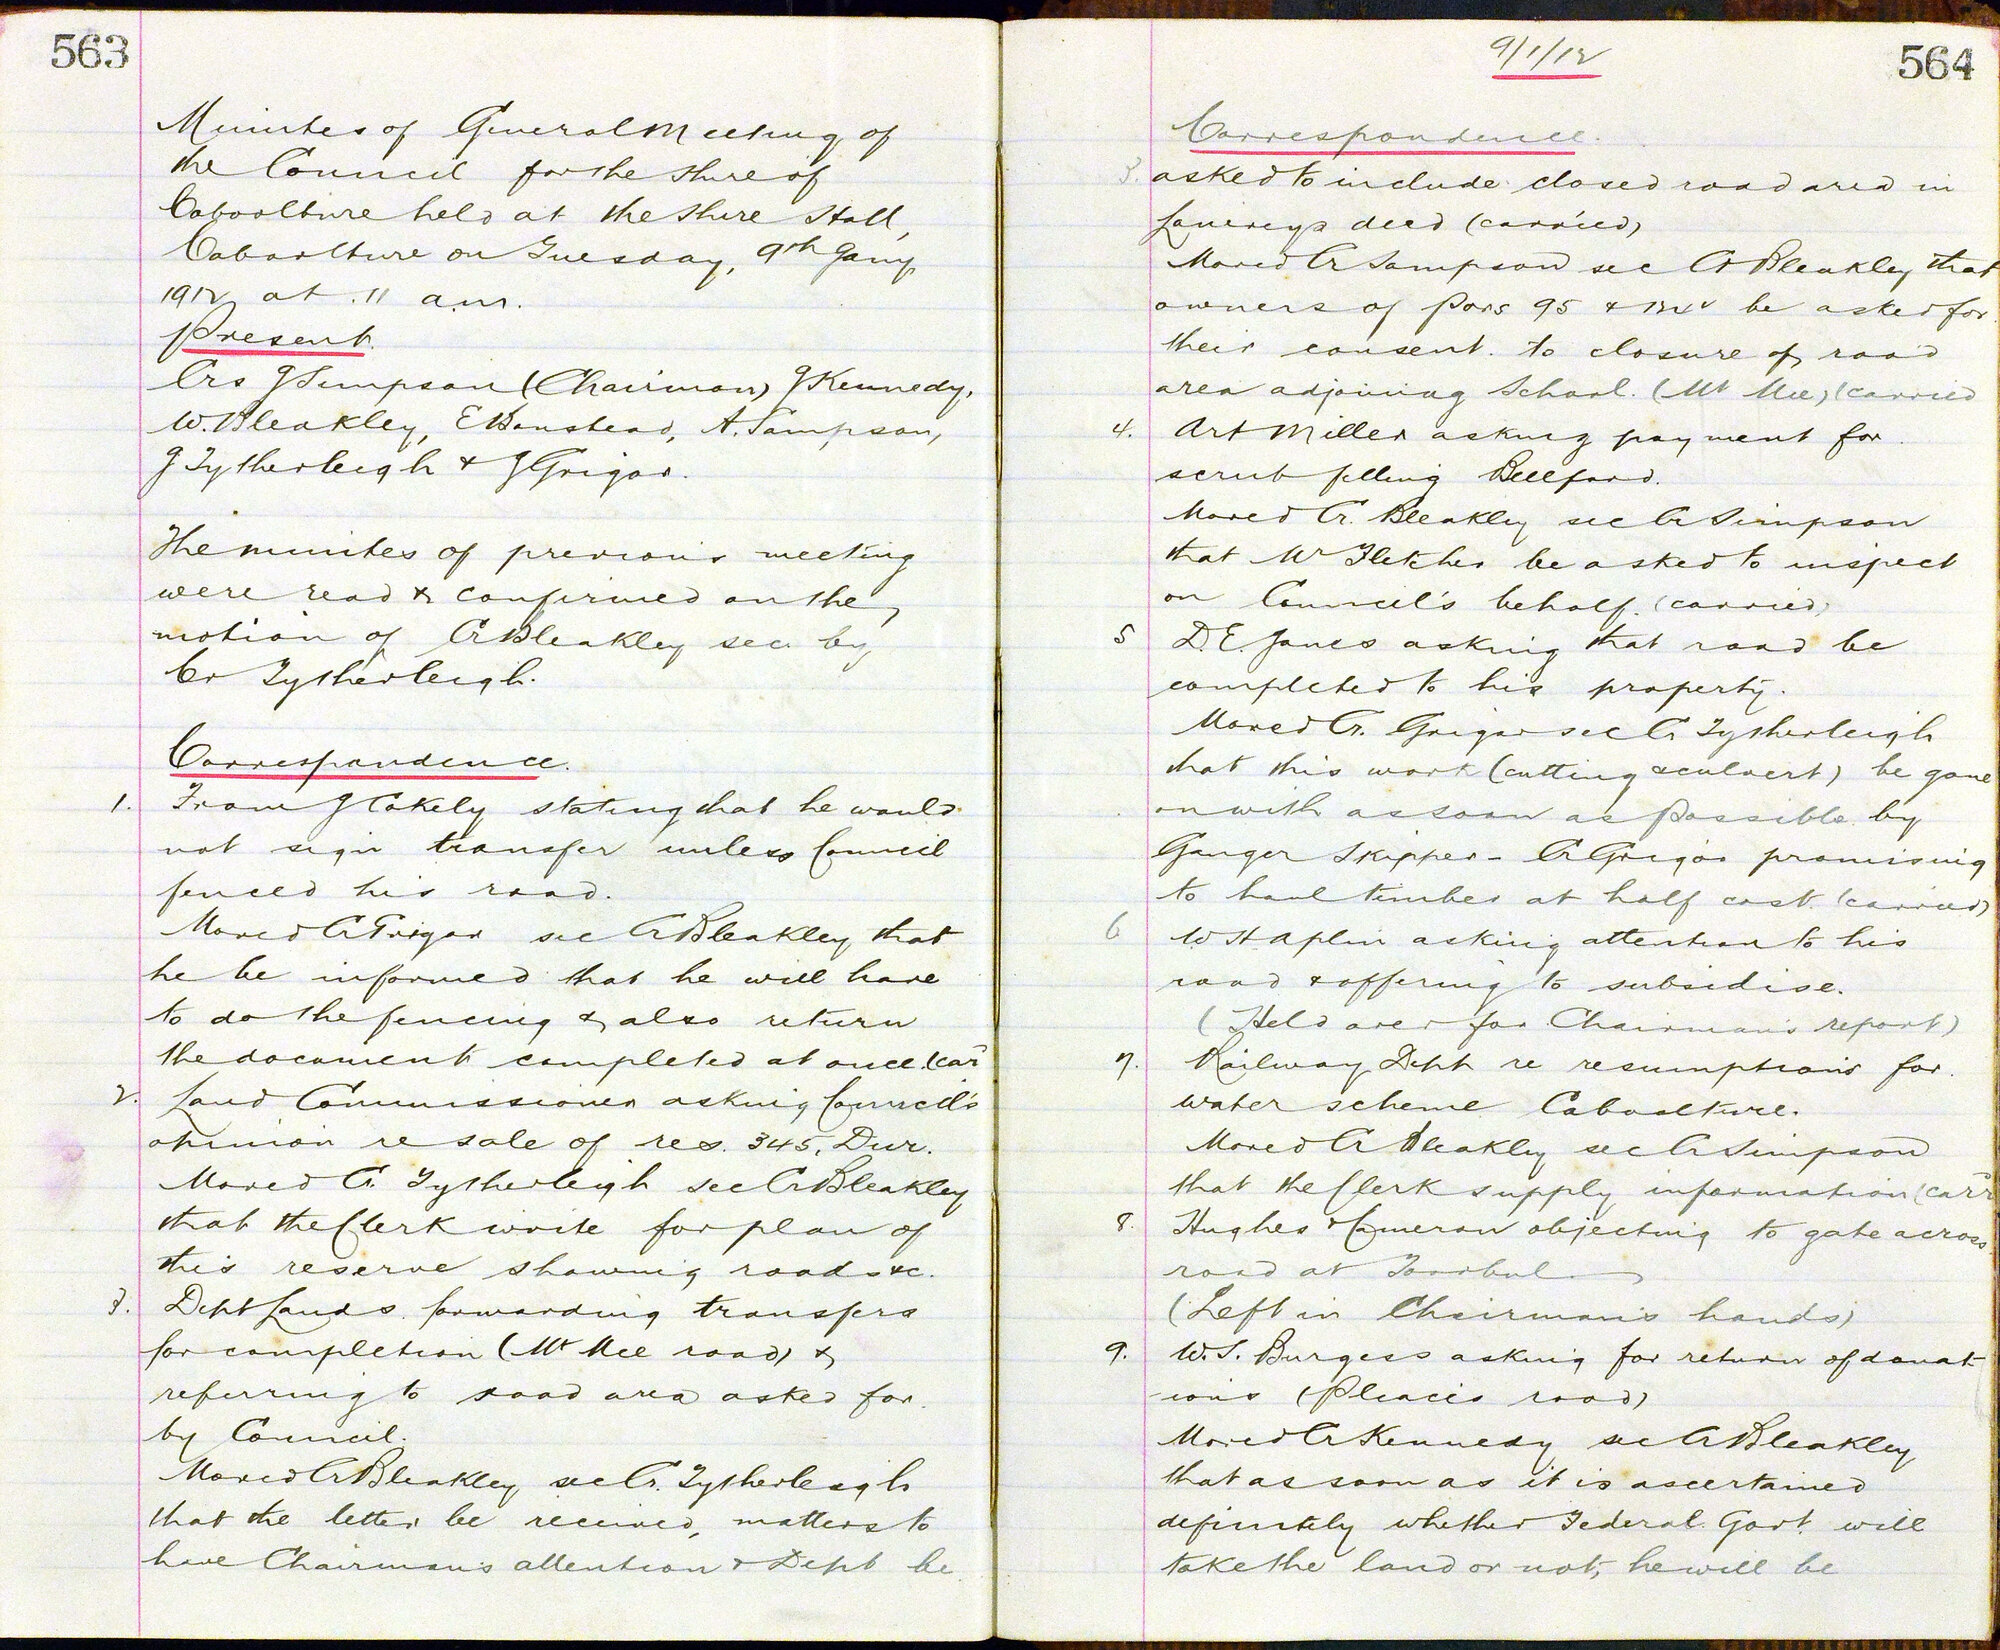 563
Minutes of General Meeting of
the Council for the Shire of
Caboolture held at the Shire Hall,
Caboolture on Tuesday, 9th Jany
1912 at 11 a.m.
Present.
Crs J Simpson (Chairman) J Kennedy,
W. Bleakley, E Banstead, A. Sampson,
J Tytherleigh & J Grigor.
The minutes of previous meeting
were read & confirmed on the
motion of Cr Bleakley sec by
Cr Tytherleigh.
Correspondence.
1. From J Cokely stating that he would
not sign transfer unless Council
fenced his road.
Moved Cr Grigor sec Cr Bleakley that
he be informed that he will have
to do the fencing & also return
the document completed at once. (carr
2. Land Commissioner asking Council's
opinion re sale of res. 345, Dur.
Moved Cr. Tytherleigh sec Cr Bleakley
that the Clerk write for plan of
this reserve showing roads &c.
3. Dept Lands forwarding transfers
for completion (Mt Mee road) &
referring to road area asked for
by Council.
Moved Cr Bleakley sec Cr. Tytherleigh
that the letter be received, matters to
have Chairman's attention & Dept be
9/1/12
564
Correspondence.
3. asked to include closed road area in
deed (carried)
Moved Cr Sampson sec Cr Bleakley that
owners of Pors 95 & be asked for
their consent to closure of road
area adjoining School. (Mt Mee) (carried
4. Art Miller asking payment for
scrub felling Bellford.
Moved Cr. Bleakley sec Cr Simpson
that Mr Fletcher be asked to inspect
on Council's behalf. (carried)
5 D. E. Jones asking that road be
completed to his property.
Moved Cr. Grigor sec Cr Tytherleigh
that this work (cutting & culvert) be gone
on with as soon as possible by
Ganger Skipper - Cr Grigor promising
to haul timber at half cost. (carried)
6 W H Aplin asking attention to his
road & offering to subsidise.
(Held over for Chairman's report)
7. Railway Dept re resumptions for
water scheme Caboolture.
Moved Cr Bleakley sec Cr Simpson
that the Clerk supply information (carr
8. Hughes & Cameron objecting to gate across
road at Toorbul
(Left in Chairman's hands)
9. W. S. Burgess asking for return of donat-
-ions ( road)
Moved Cr Kennedy sec Cr Bleakley
that as soon as it is ascertained
definitely whether Federal Govt. will
take the land or not, he will be